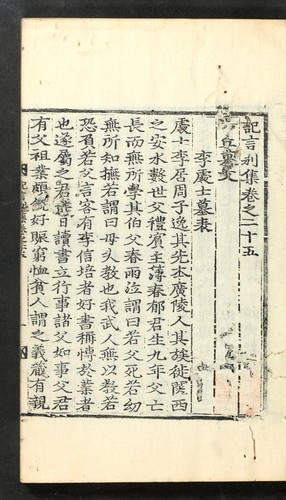 記言別集卷之二十五
丘墓文
李處士墓表
處士李居周子逸其先本廣陵人其族徙隴西
之安水數世父禮賓主薄春郁君生九年父亡
長而無所學其伯父春雨泣謂曰若父死若幼
無所知撫若謂曰毋失教也我武人無以教若
恐負若父言客有李信培者好書稱博於業者
也遂屬之君 日讀書立行事諸父如事父君
有父祖業頗饒好賑窮恤貧人謂之義藏有親